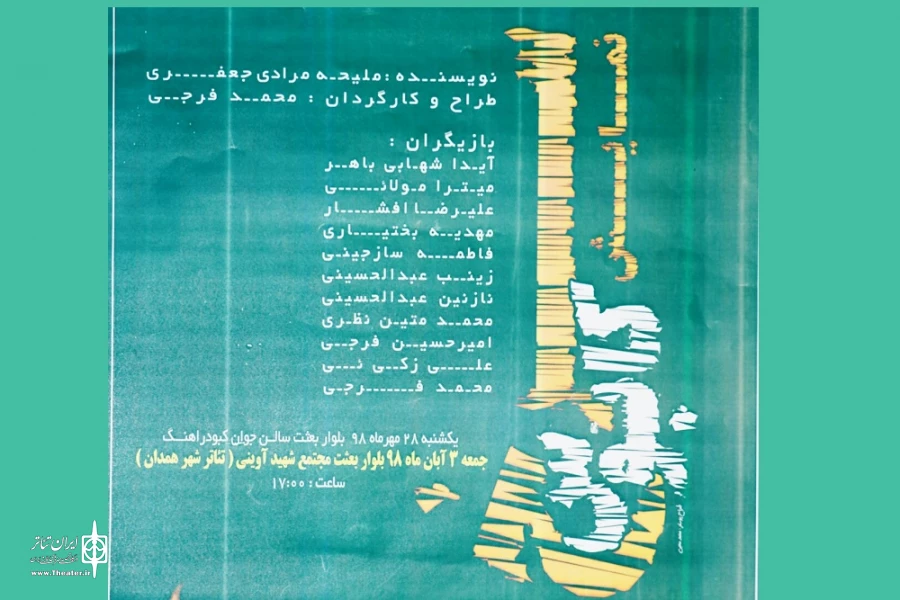 نمایش
کابوس
نویسنده : ملیحه مرادی جعفری
طراح و کارگردان : محمد فرجی
بازیگران :
آیدا شهابی باهر
میترا مولائی
علیرضا افشار
مهدیه بختیاری
فاطمه سازجینی
زینب عبدالحسینی
نازنین عبدالحسینی
محمد متین نظری
امیرحسین فرجی
علی زکی ئی
محمد فرجی
یکشنبه ۲۸ مهرماه ۹۸ بلوار بعثت سالن جوان کبودراهنگ
جمعه ۳ آبان ماه ۹۸ بلوار بعثت مجتمع شهید آوینی ( تئاتر شهر همدان )
ساعت : ۱۷:۰۰
ایران تئاتر
www.Theater.ir